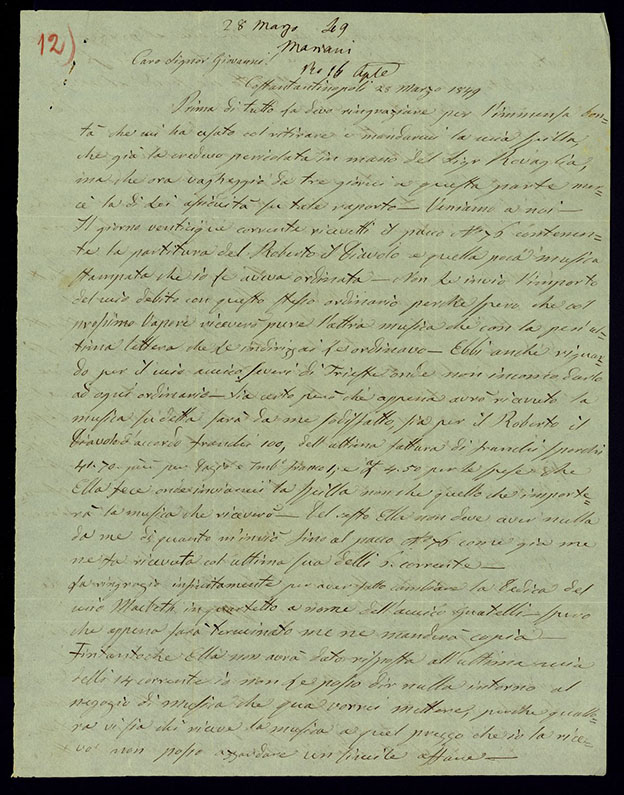 28 Marzo 49
12)
Mariani
Caro Signor Giovanni!
Costantinopoli 28 Marzo 1849
Prima di tutto La devo ringraziare per l'immensa bon=
tà che mi ha usato col ritirare e mandarmi la mia spilla,
che già la credevo pericolata in mano del Sigr Rovaglia,
ma che ora vagheggio da tre giorni a questa parte
la di Lei su tale raporto — Veniamo a noi —
Il giorno corrente ricevetti il pacco No 76 contenen=
te la partitura del Roberto il Diavolo e quella poca musica
stampata che io Le aveva ordinata — Non Le invio l'importo
del mio debito con questo stesso ordinario perchè spero che col
prossimo Vapore riceverò pure l'altra musica che con la pen'ul=
tima lettera che Le indirizzai Le ordinavo — Ebbi anche rigua=
do per il mio amico di Trieste onde non incomodarlo
ad ogni ordinario — Sia certo però che appena avrò ricevuto la
musica su detta sarà da me sodisfatto, sia per il Roberto il
Diavolo accordo franchi 100, dell'ultima fattura di franchi
41.70 più per Dazio e franco 1, e 4.50 per le spese che
Ella fece onde inviarmi la spilla non che quello che importe=
rà la musica che riceverò — Del resto Ella non deve aver nulla
da me di quanto m'inviò sino al pacco No 76 come già me
ne fa ricevuta col ultima sua delli corrente —
La ringrazio infinitamente per aver fatto cambiare la Dedica del
mio Macbeth in quartetto a nome dell'amico Guatelli — spero
che appena sarà terminato me ne manderà copia —
Fintantochè Ella non avrà dato risposta all'ultima mia
delli 14 corrente io non Le posso dir nulla intorno al
negozio di musica che qua vorrei mettere, perchè qualo=
ra vi sia chi riceve la musica a quel prezzo che io la rice=
vo non posso azardare un simile affare —